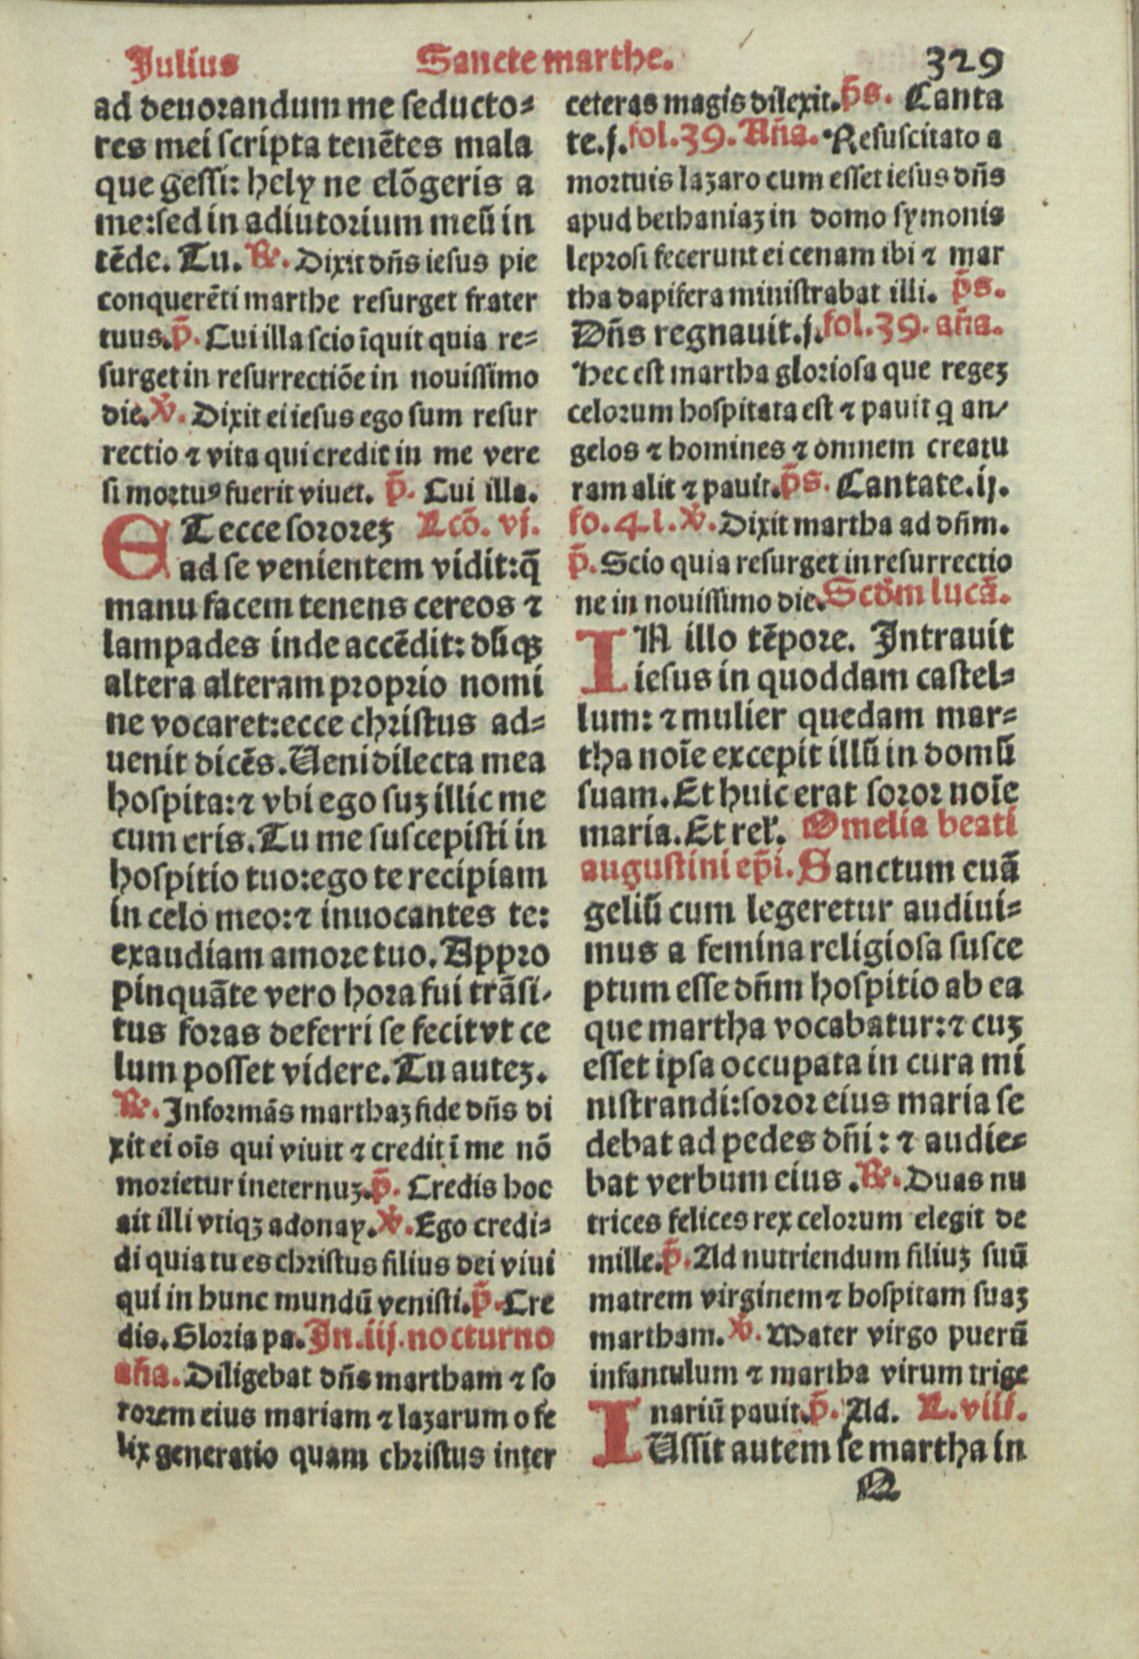 Julius Sancte marthe. 329
ad deuorandum me seducto=
res mei scripta tenētes mala
que gessi: hely ne elōgeris a
me:sed in adiutorium meū in
tēde. Tu. ℟. Dixit dn̄s iesus pie
conquerēti marthe resurget frater
tuus.p̄. Cui illa scio īquit quia re=
surget in resurrectiōe in nouissimo
die.℣. Dixit ei iesus ego sum resur
rectio ⁊ vita qui credit in me vere
si mortuꝰ fuerit viuet. p̄. Cui illa.
ET ecce sororeʒ Lcō. vj.
ad se venientem vidit:q̄
manu facem tenens cereos ⁊
lampades inde accēdit: dūqꝫ
altera alteram proprio nomi
ne vocaret:ecce christus ad=
uenit dicēs.Ueni dilecta mea
hospita:⁊ vbi ego suʒ illic me
cum eris.Tu me suscepisti in
hospitio tuo:ego te recipiam
in celo meo:⁊ inuocantes te:
exaudiam amore tuo. Appro
pinquāte vero hora sui trāsi-
tus foras deferri se fecit vt ce
lum posset videre.Tu auteʒ.
℟.Informās marthaʒ fide dn̄s di
xit ei oīs qui viuit ⁊ credit ī me nō
morietur in eternuʒ.p̄. Credis hoc
ait illi vtiqʒ adonay.℣.Ego credi=
di quia tu es christus filius dei viui
qui in hunc mundū venisti.p̄.Cre
dis.Gloria pa.In.iij.nocturno
an̄a.Diligebat dn̄s martham ⁊ so
rorem eius mariam ⁊ lazarum o fe
lix generatio quam christus inter
ceteras magis dilexit.p̄s. Canta
te.j.fol.39.An̄a.Resuscitato a
mortuis lazaro cum esset iesus dn̄s
apud bethaniaʒ in domo symonis
leprosi fecerunt ei cenam ibi ⁊ mar
tha dapifera ministrabat illi. p̄s.
Dn̄s regnauit.j.fol.39.an̄a.
Hec est martha gloriosa que regeʒ
celorum hospitata est ⁊ pauit q an/
gelos ⁊ homines ⁊ omnem creatu
ram alit ⁊ pauit.p̄s. Cantate.ij.
fo.41.℣.Dixit martha ad dn̄m.
p̄.Scio quia resurget in resurrectio
ne in nouissimo die.Scd̄m lucā.
IN illo tēpore. Intrauit
iesus in quoddam castel=
lum: ⁊ mulier quedam mar=
tha noīe excepit illū in domū
suam.Et huic erat soror noīe
maria.Et relꝭ. Omelia beati
augustini ep̄i.Sanctum euā
geliū cum legeretur audiui=
mus a femina religiosa susce
ptum esse dn̄m hospitio ab ea
que martha vocabatur:⁊ cuʒ
esset ipsa occupata in cura mi
nistrandi:soror eius maria se
debat ad pedes dn̄i: ⁊ audie=
bat verbum eius .℟.Duas nu
trices felices rex celorum elegit de
mille.p̄.Ad nutriendum filiuʒ suū
matrem virginem ⁊ hospitam suaʒ
martham.℣.Mater virgo puerū
infantulum ⁊ martha virum trige
nariū pauit.p̄. Ad. L.viij.
IUssit autem se martha in
Q